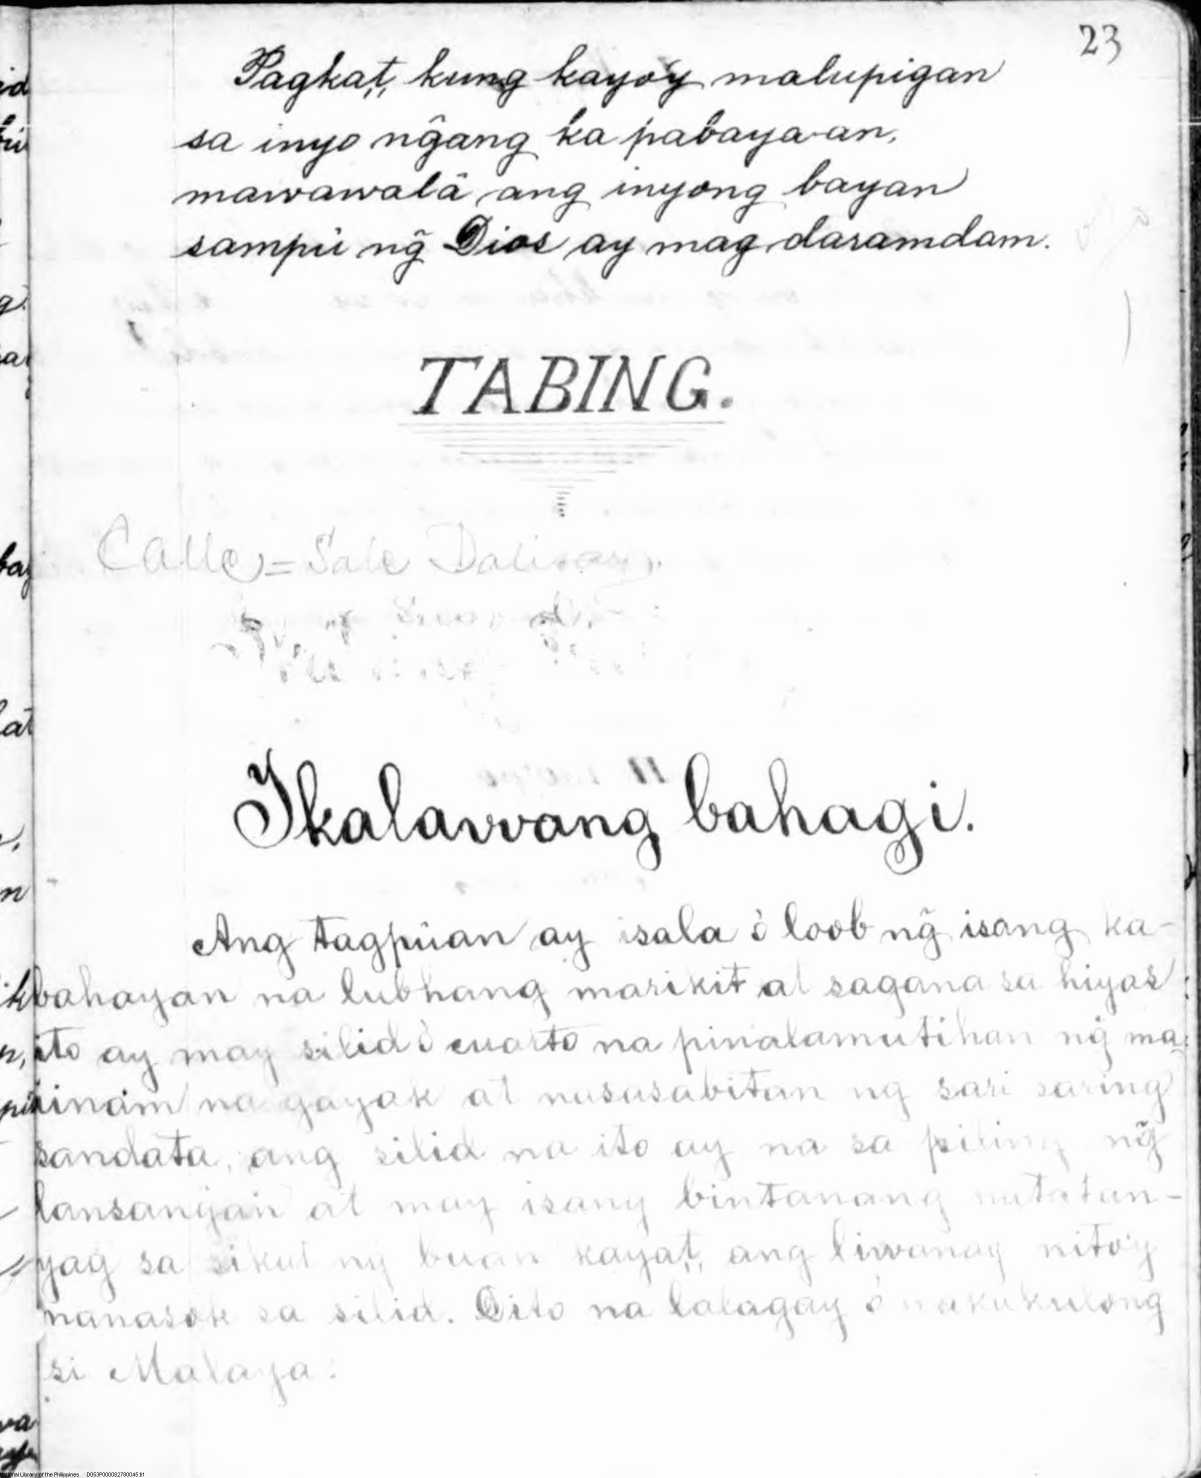 23
Pagkat, kung kayo'y malupigan
sa inyo ng̃ang ka pabaya-an,
mawawalâ ang inyong bayan
sampu ng̃ Dios ay mag daramdam.
TABING.
Calle = Sale Dalisay.
Ikalawang bahagi.
Ang tagpuan ay isala ó loob ng̃ isang ka-
bahayan na lubhang marikit at sagana sa hiyas
ito ay may silid ó cuarto na pinalamutihan ng̃ ma
iinam na gayak at nasasabitan ng sari saring
sandata, ang silid na ito ay na sa piling ng̃
lansangan at may isang bintanang natatan-
yag sa sikat ng buan kayat, ang liwanag nito'y
nanasok sa silid. Dito na lalagay ó nakukulong
si Malaya.
National Library of the Philippines